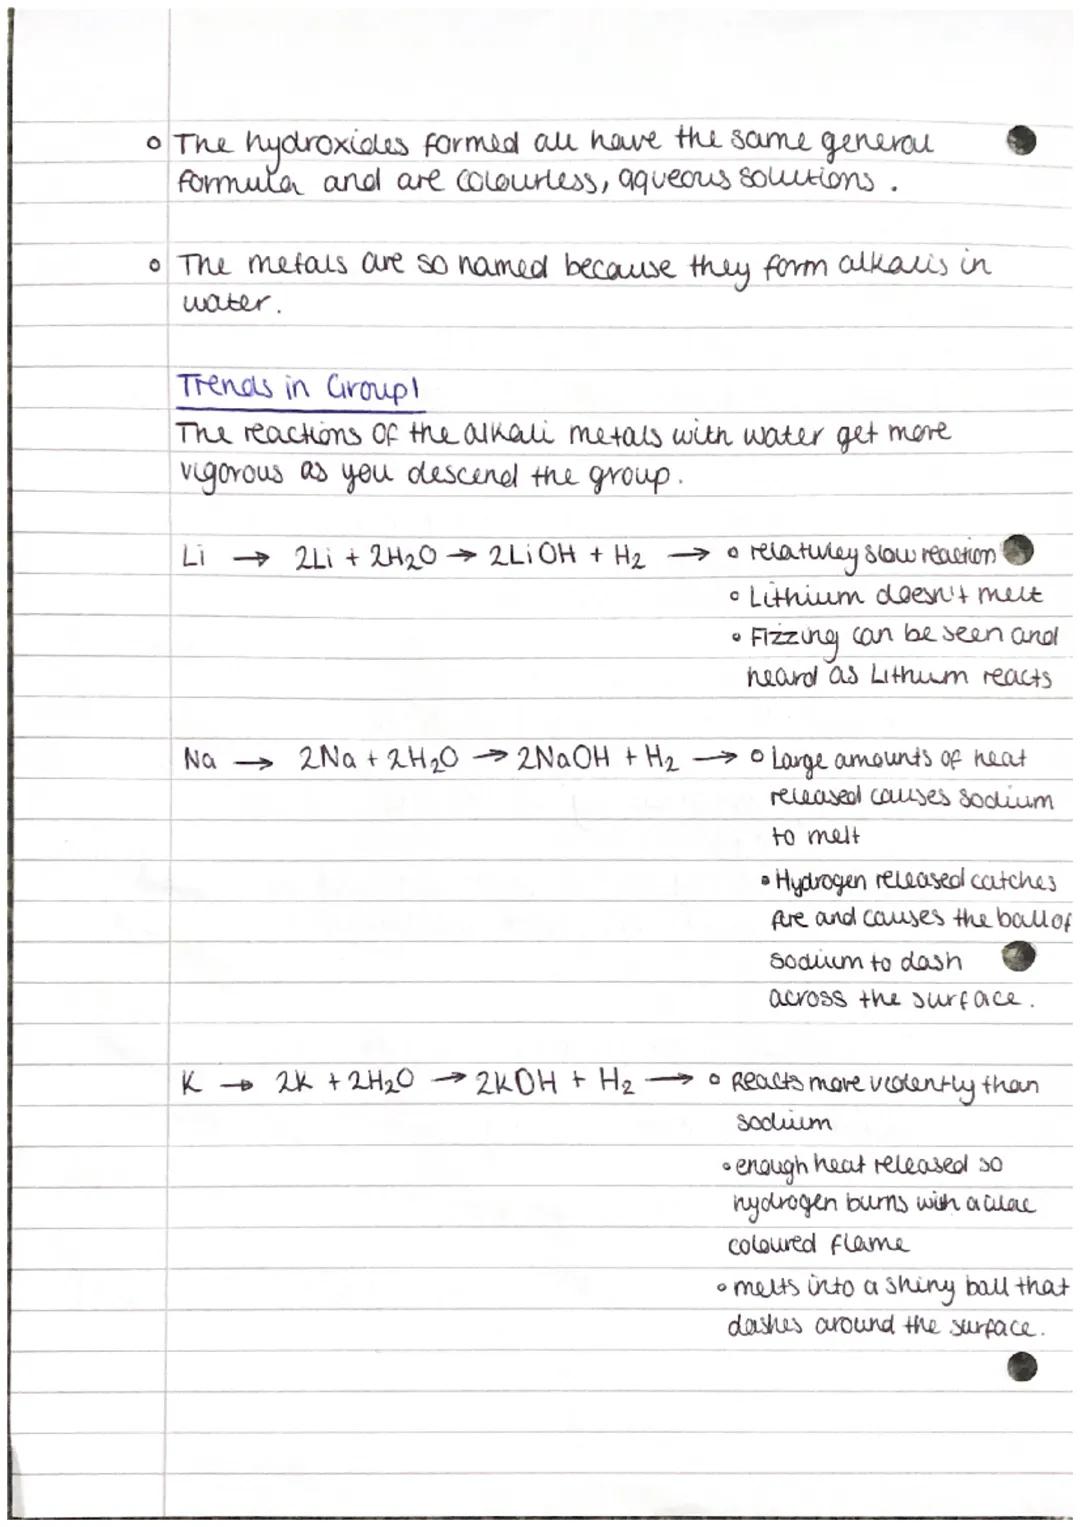 o The hydroxides formed all have the same general
formula and are colourless, aqueous solutions.
o The metals are so named because they form alkalis in
water.
Trends in Group 1
The reactions of the alkali metals with water get more
vigorous as you descend the group.
Li → 2Li + 2H₂O → 2LiOH + H₂ → o relativley slow reaction
o Lithium doesn't melt
• Fizzing can be seen and
heard as Lithium reacts
Na → 2Na + 2H₂O → 2NaOH + H₂ → o Large amounts of heat
released causes sodium
to melt
• Hydrogen released catches
fire and causes the ball of
sodium to dash
across the surface.
K → 2K + 2H₂O → 2KOH + H₂ → o Reacts more violently than
sodium
• enough heat released so
hydrogen burns with a lilac
coloured flame
o melts into a shiny ball that
dashes around the surface.